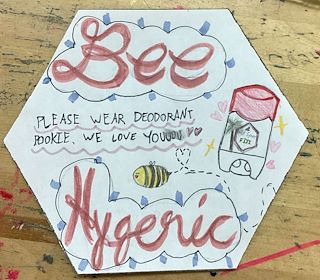 Bee
PLEASE WEAR DEODORANT
POOKIE, WE LOVE YOUUU!
Hygenic